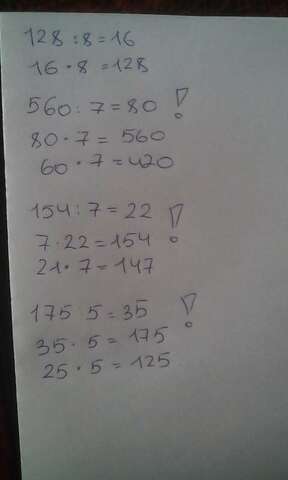 128 : 8 = 16
16 · 8 = 128
560 : 7 = 80 !
80 · 7 = 560
60 · 7 = 420
154 : 7 = 22 !
7 · 22 = 154
21 · 7 = 147
175 5 = 35 !
35 · 5 = 175
25 · 5 = 125